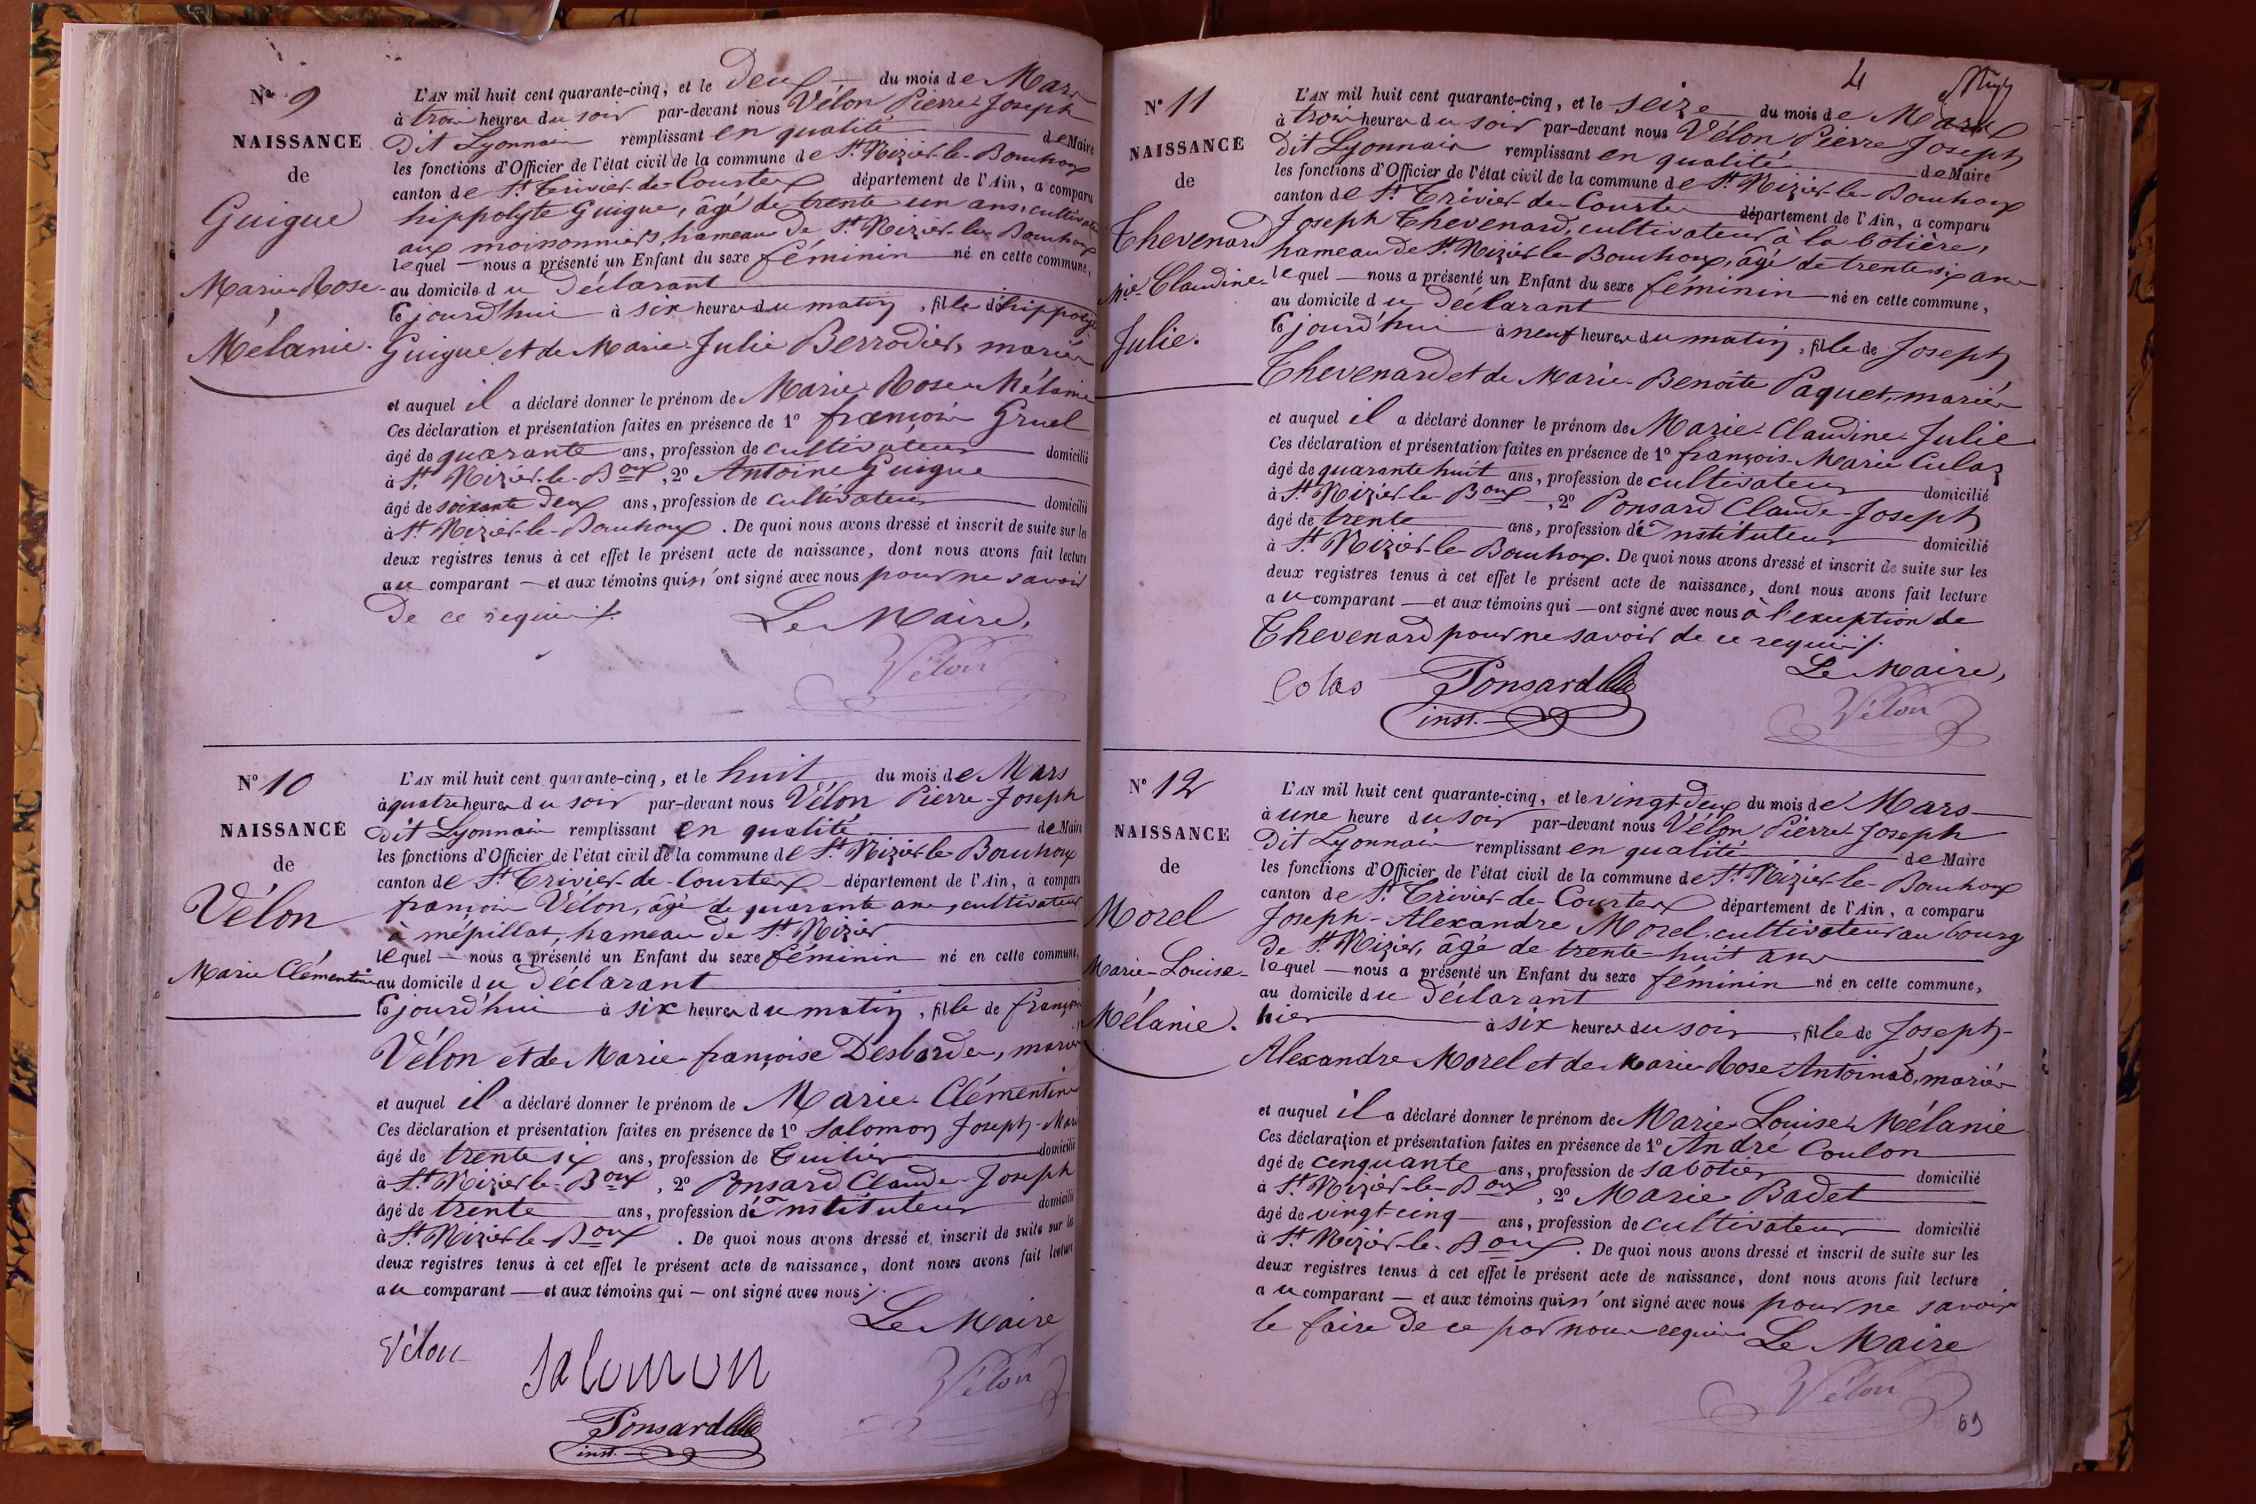 Nº 9
NAISSANCE
de
Guigue
Marie-Rose-
Mélanie.
L'AN mil huit cent quarante-cinq, et le deux du mois de Mars
à trois heures du soir par-devant nous Vélon Pierre-Joseph
dit Lyonnais remplissant en qualité de Maire
les fonctions d'Officier de l'état civil de la commune de St Nizier-le-Bouchoux
canton de St Trivier-de-Courtes département de l'Ain, a comparu
hippolyte Guigue, âgé de trente un ans, cultivateur
aux moissonniers, hameau de St Nizier-le-Bouchoux
lequel nous a présenté un Enfant du sexe féminin né en cette commune,
au domicile du déclarant
cejourd'hui à six heures du matin, fille de hippolyte
Guigue et de Marie-Julie Berrodier, mariés
et auquel il a déclaré donner le prénom de Marie-Rose-Mélanie
Ces déclaration et présentation faites en présence de 1º françois Gruel
âgé de quarante ans, profession de cultivateur domicilié
à St Nizier-le-Boux, 2º Antoine Guigue
âgé de soixante deux ans, profession de cultivateur domicilié
à St Nizier-le-Bouchoux. De quoi nous avons dressé et inscrit de suite sur les
deux registres tenus à cet effet le présent acte de naissance, dont nous avons fait lecture
au comparant — et aux témoins qui n'ont signé avec nous pour ne savoir
de ce requis /.
Le Maire,
Vélon
Nº 10
NAISSANCE
de
Vélon
Marie Clémentine
L'AN mil huit cent quarante-cinq, et le huit du mois de Mars
à quatre heures du soir par-devant nous Vélon Pierre-Joseph
dit Lyonnais remplissant en qualité de Maire
les fonctions d'Officier de l'état civil de la commune de St Nizier-le-Bouchoux
canton de St Trivier-de-Courtes département de l'Ain, a comparu
françois Vélon, âgé de quarante ans, cultivateur
à mépillat, hameau de St Nizier
lequel — nous a présenté un Enfant du sexe féminin né en cette commune,
au domicile du déclarant
cejourd'hui à six heures du matin, fille de françois
Vélon et de Marie-françoise Desbordes, mariés
et auquel il a déclaré donner le prénom de Marie-Clémentine
Ces déclaration et présentation faites en présence de 1º Salomon Joseph-Marie
âgé de trente six ans, profession de Tuilier domicilié
à St Nizier-le-Boux, 2º Ponsard Claude-Joseph
âgé de trente ans, profession d'Instituteur domicilié
à St Nizier-le-Boux. De quoi nous avons dressé et inscrit de suite sur les
deux registres tenus à cet effet le présent acte de naissance, dont nous avons fait lecture
au comparant — et aux témoins qui — ont signé avec nous /.
Le Maire
Vélon Salomon Vélon
Ponsard
inst.
4
Nº 11
NAISSANCE
de
Thevenard
Mie-Claudine-
Julie.
L'AN mil huit cent quarante-cinq, et le seize du mois de Mars
à trois heures du soir par-devant nous Vélon Pierre Joseph
dit Lyonnais remplissant en qualité de Maire
les fonctions d'Officier de l'état civil de la commune de St Nizier-le-Bouchoux
canton de St Trivier-de-Courtes département de l'Ain, a comparu
Joseph Thevenard, cultivateur à la botière,
hameau de St Nizier-le-Bouchoux, âgé de trente six ans
lequel — nous a présenté un Enfant du sexe féminin né en cette commune,
au domicile du déclarant
cejourd'hui à neuf heures du matin, fille de Joseph
Thevenard et de Marie-Benoîte Paquet, mariés
et auquel il a déclaré donner le prénom de Marie-Claudine-Julie
Ces déclaration et présentation faites en présence de 1º françois-Marie Culas
âgé de quarante huit ans, profession de cultivateur domicilié
à St Nizier-le-Boux, 2º Ponsard Claude-Joseph
âgé de trente ans, profession d'Instituteur domicilié
à St Nizier-le-Bouchoux. De quoi nous avons dressé et inscrit de suite sur les
deux registres tenus à cet effet le présent acte de naissance, dont nous avons fait lecture
au comparant — et aux témoins qui — ont signé avec nous à l'exception de
Thevenard pour ne savoir de ce requis /.
Le Maire,
Colas Ponsard Vélon
inst.
Nº 12
NAISSANCE
de
Morel
Marie-Louise-
Mélanie.
L'AN mil huit cent quarante-cinq, et le vingt-deux du mois de Mars
à une heure du soir par-devant nous Vélon Pierre-Joseph
dit Lyonnais remplissant en qualité de Maire
les fonctions d'Officier de l'état civil de la commune de St Nizier-le-Bouchoux
canton de St Trivier-de-Courtes département de l'Ain, a comparu
Joseph-Alexandre Morel, cultivateur au bourg
de St Nizier, âgé de trente-huit ans
lequel — nous a présenté un Enfant du sexe féminin né en cette commune,
au domicile du déclarant
hier à six heures du soir, fille de Joseph-
Alexandre Morel et de Marie-Rose Antoinad, mariés
et auquel il a déclaré donner le prénom de Marie-Louise-Mélanie
Ces déclaration et présentation faites en présence de 1º André Coulon
âgé de cinquante ans, profession de sabotier domicilié
à St Nizier-le-Boux, 2º Marie Badet
âgé de vingt-cinq ans, profession de cultivateur domicilié
à St Nizier-le-Boux. De quoi nous avons dressé et inscrit de suite sur les
deux registres tenus à cet effet le présent acte de naissance, dont nous avons fait lecture
au comparant — et aux témoins qui n'ont signé avec nous pour ne savoir
le faire de ce par nous requis Le Maire
Vélon
69